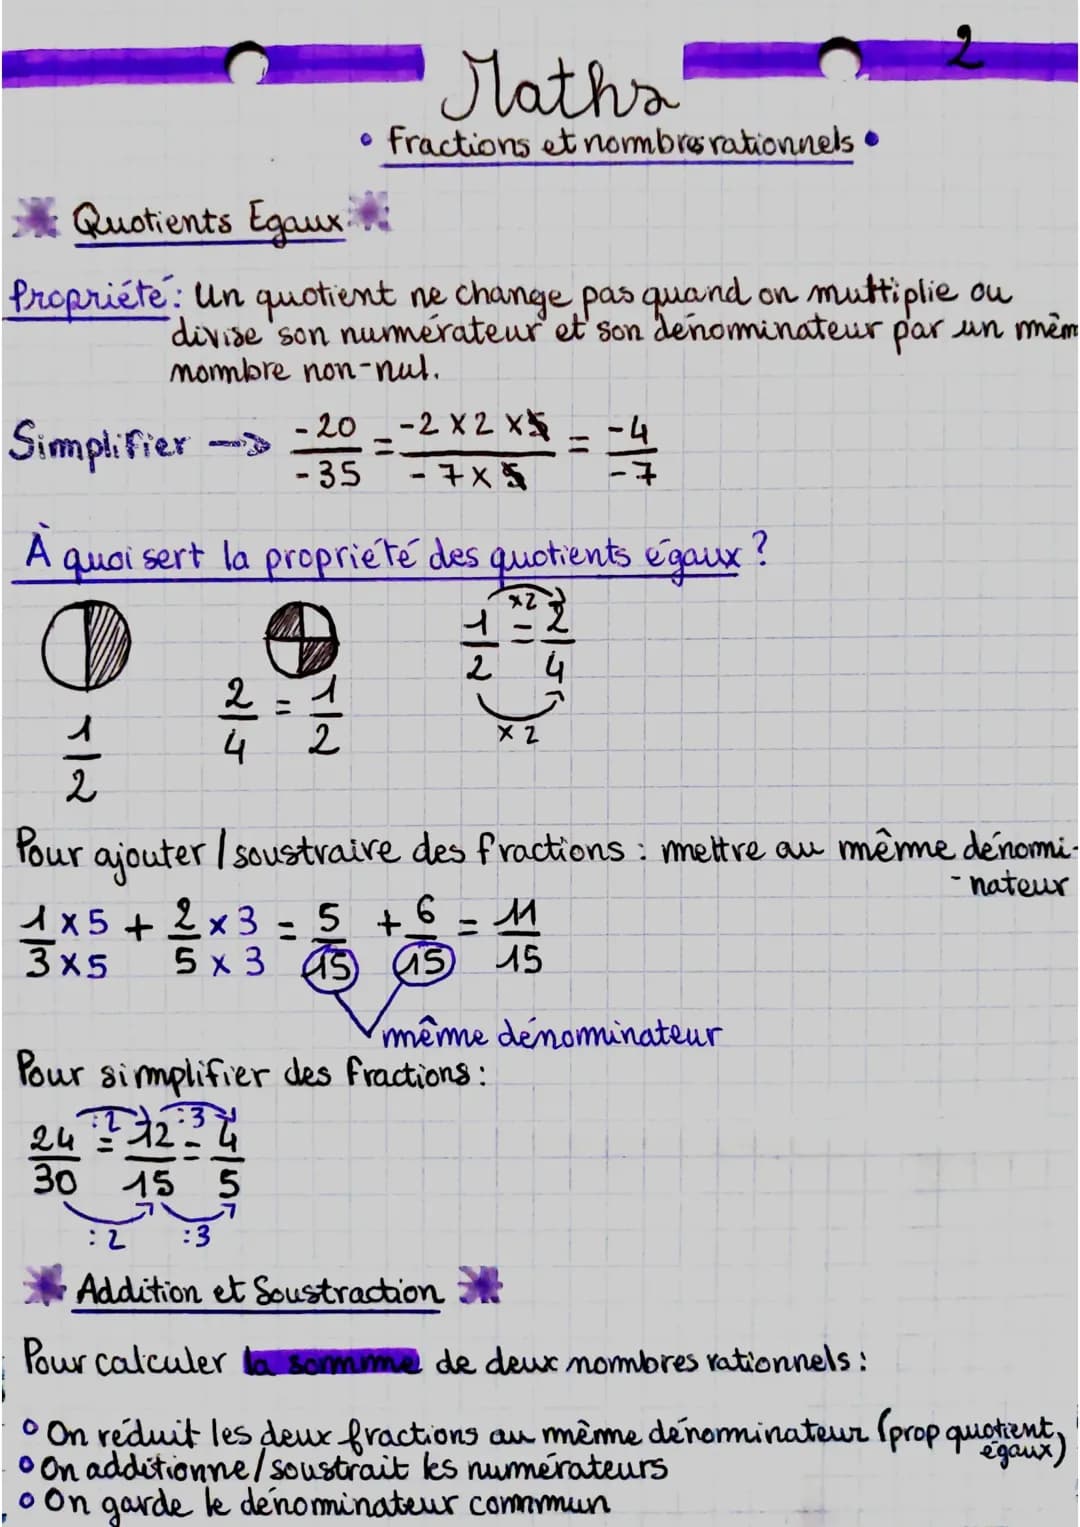 2
Maths
• Fractions et nombres rationnels •
Quotients Egaux
Propriété: Un quotient ne change pas quand on multiplie ou
divise son numérateur et son dénominateur par un mêm
nombre non-nul.
Simplifier --> -20/-35 = -2 x 2 x 5/-7 x 5 = -4/-7
À quoi sert la propriété des quotients égaux ?
x2
1/2 = 2/4
x 2
1/2
2/4 = 1/2
Pour ajouter / soustraire des fractions : mettre au même dénomi-
-nateur
1 x 5/3 x 5 + 2 x 3/5 x 3 = 5/15 + 6/15 = 11/15
même dénominateur
Pour simplifier des fractions :
:2 :3
24/30 = 12/15 = 4/5
:2 :3
Addition et Soustraction
Pour calculer la somme de deux nombres rationnels :
° On réduit les deux fractions au même dénominateur (prop quotient,
égaux)
° On additionne / soustrait les numérateurs
° On garde le dénominateur commun